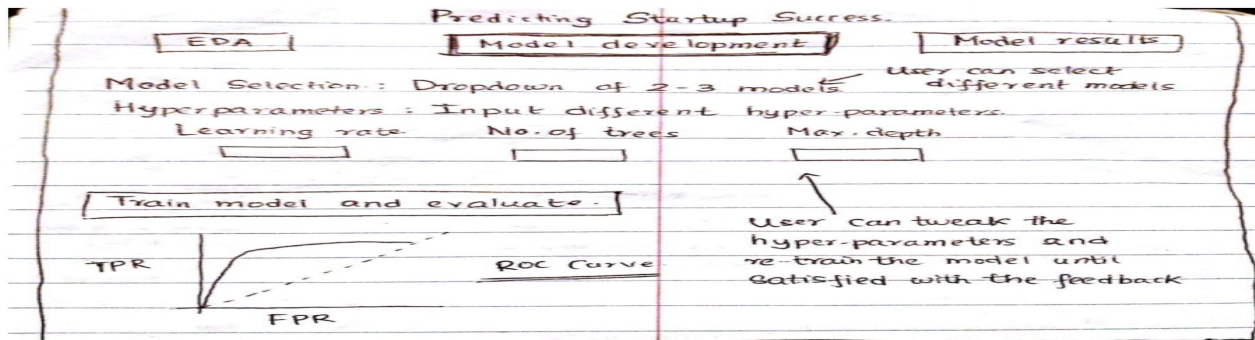 Predicting Startup Success.
EDA
Model development
Model results
Model Selection : Dropdown of 2-3 models
User can select
different models
Hyperparameters : Input different hyper-parameters.
Learning rate No. of trees Max. depth
Train model and evaluate.
TPR
FPR
ROC Curve
User can tweak the
hyper-parameters and
re-train the model until
satisfied with the feedback